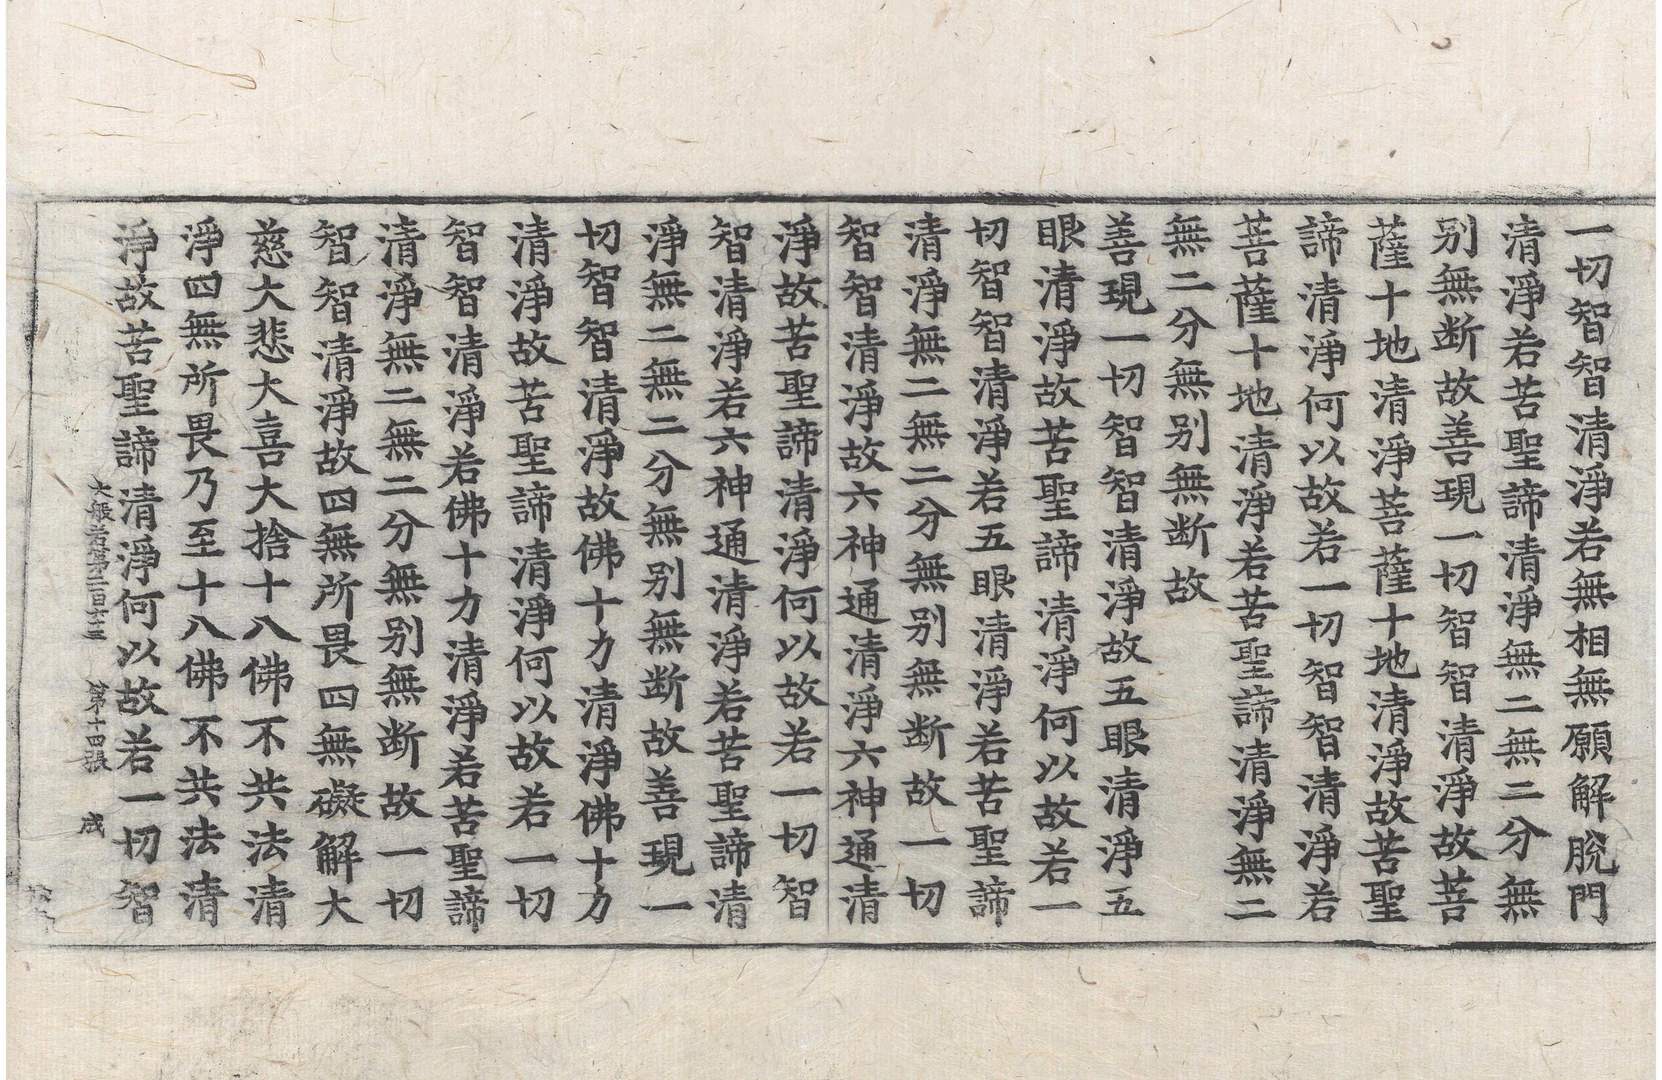 一切智智清淨若無相無願解脫門
清淨若苦聖諦清淨無二無二分無
别無断故善現一切智智清淨故菩
薩十地清淨菩薩十地清淨故苦聖
諦清淨何以故若一切智智清淨若
菩薩十地清淨若苦聖諦清淨無二
無二分無别無断故
善現一切智智清淨故五眼清淨五
眼清淨故苦聖諦清淨何以故若一
切智智清淨若五眼清淨若苦聖諦
清淨無二無二分無别無断故一切
智智清淨故六神通清淨六神通清
淨故苦聖諦清淨何以故若一切智
智清淨若六神通清淨若苦聖諦清
淨無二無二分無别無断故善現一
切智智清淨故佛十力清淨佛十力
清淨故苦聖諦清淨何以故若一切
智智清淨若佛十力清淨若苦聖諦
清淨無二無二分無别無断故一切
智智清淨故四無所畏四無礙解大
慈大悲大喜大捨十八佛不共法清
淨四無所畏乃至十八佛不共法清
淨故苦聖諦清淨何以故若一切智
大般若第二百六十三 第十四張 成